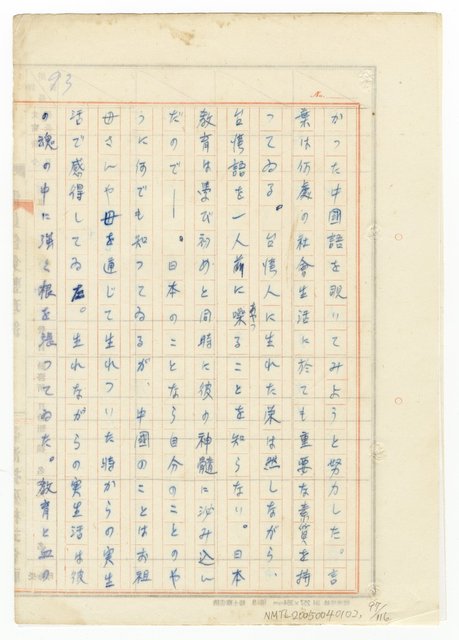 93
No.
かった中國語を覗いてみようと努力した。言
葉は何處の社會生活に於ても重要な素質を持
ってゐる。台湾人に生れた栄は然しながら、
台湾語を一人前に喋ることを知らない。日本
教育は学び初めと同時に彼の神髄に泌み込ん
だので——。日本のことなら自分のことのや
うに何でも知ってゐるが、中國のことはお祖
母さんや母を通じて生れついた時からの実生
活で感得してゐた。生れながらの実生活は彼
の魂の中に深く根を張ってゐた。教育と血の
NMTL20050040103,
97/116